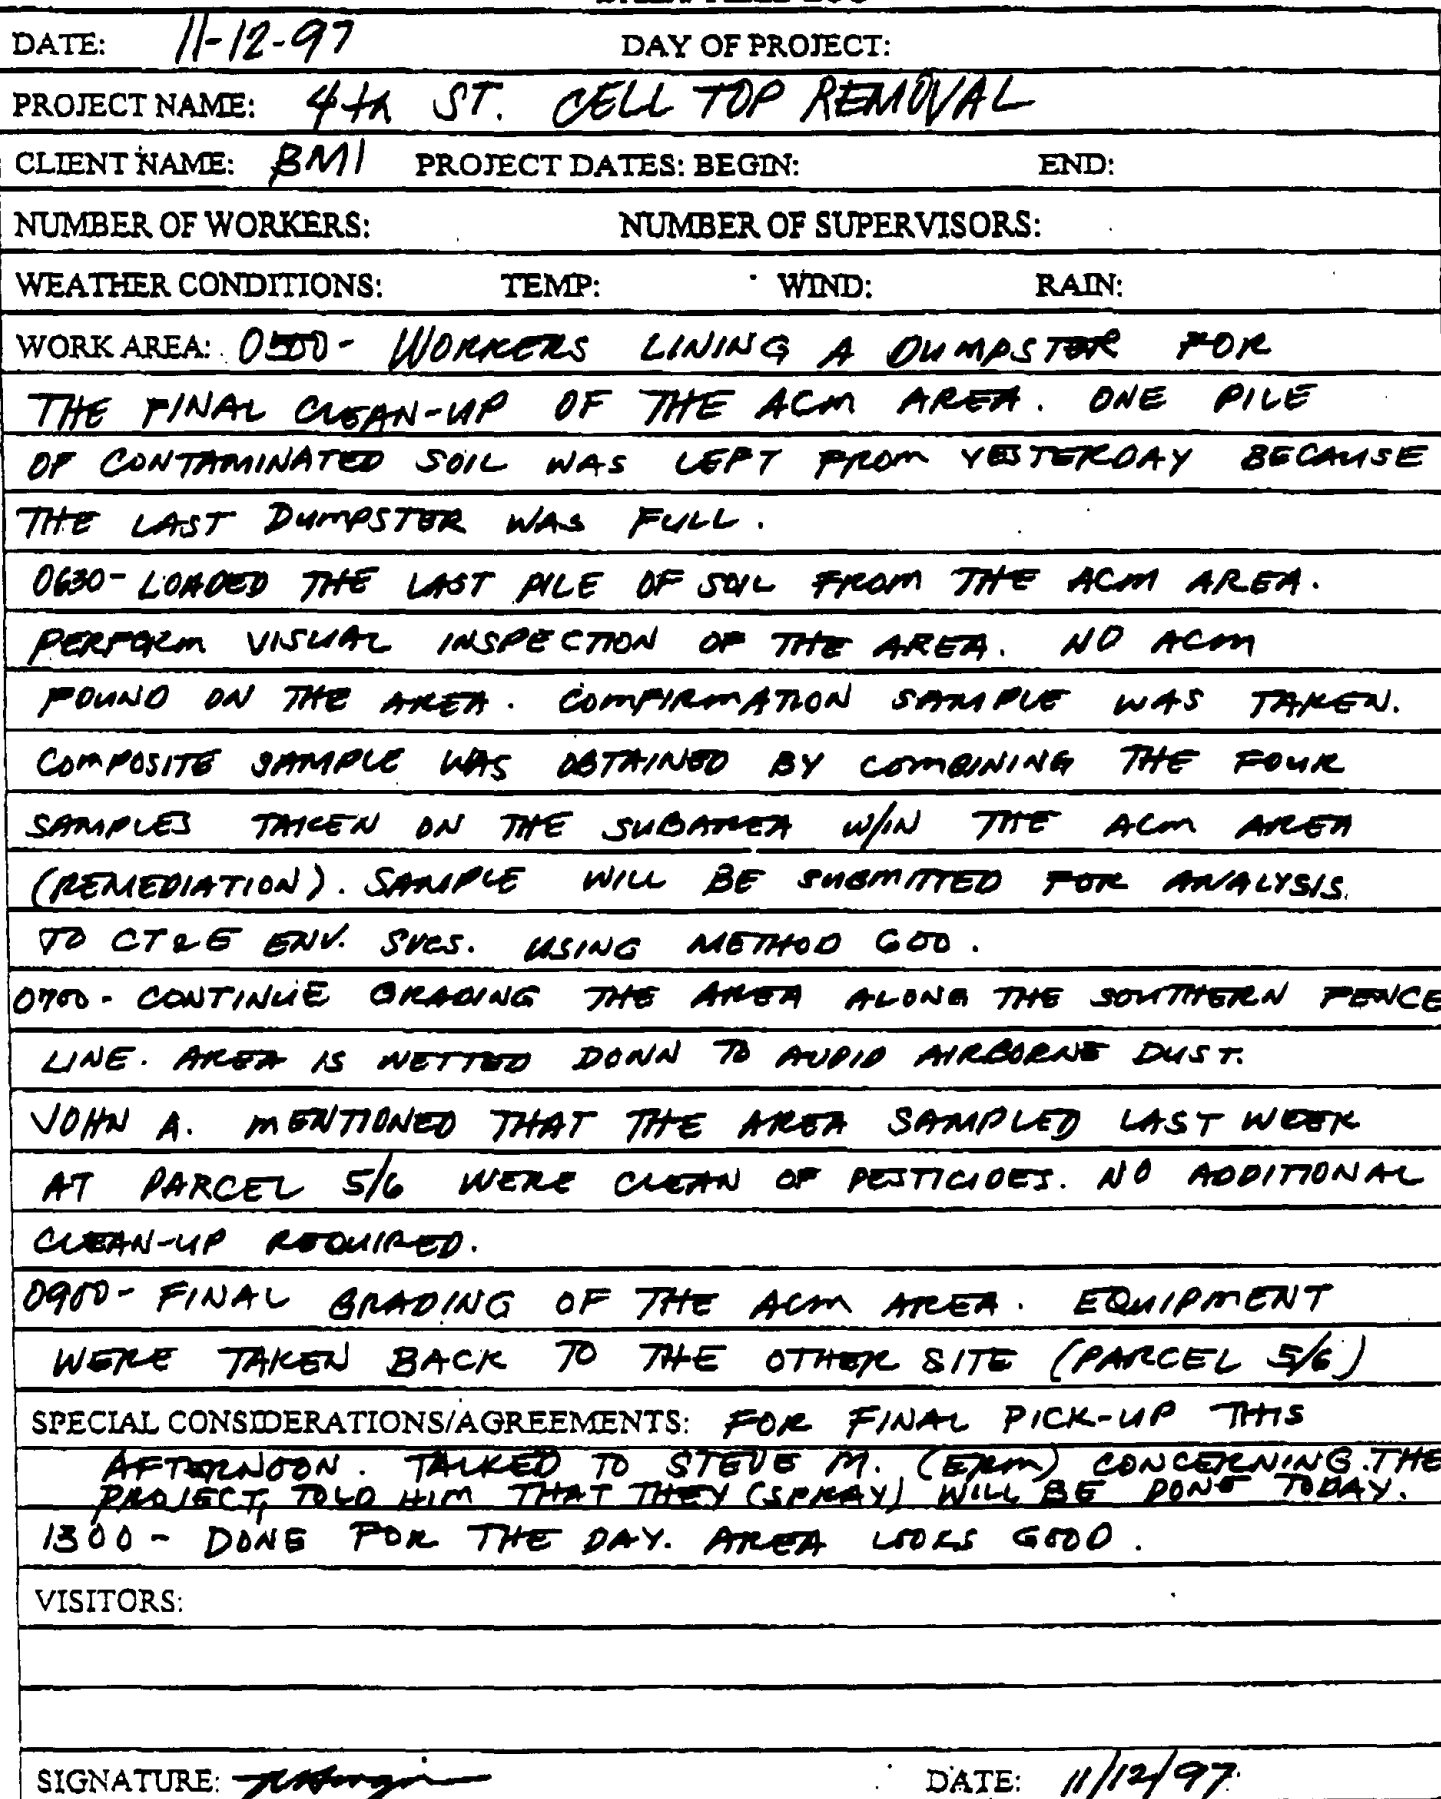 DATE: 11-12-97 DAY OF PROJECT:
PROJECT NAME: 4th ST. CELL TOP REMOVAL
CLIENT NAME: BMI PROJECT DATES: BEGIN: END:
NUMBER OF WORKERS: NUMBER OF SUPERVISORS:
WEATHER CONDITIONS: TEMP: WIND: RAIN:
WORK AREA: 0500- WORKERS LINING A DUMPSTER FOR
THE FINAL CLEAN-UP OF THE ACM AREA. ONE PILE
OF CONTAMINATED SOIL WAS LEFT FROM YESTERDAY BECAUSE
THE LAST DUMPSTER WAS FULL.
0630- LOADED THE LAST PILE OF SOIL FROM THE ACM AREA.
PERFORM VISUAL INSPECTION OF THE AREA. NO ACM
FOUND ON THE AREA. COMFIRMATION SAMPLE WAS TAKEN.
COMPOSITE SAMPLE WAS OBTAINED BY COMBINING THE FOUR
SAMPLES TAKEN ON THE SUBAREA W/IN THE ACM AREA
(REMEDIATION). SAMPLE WILL BE SUBMITTED FOR ANALYSIS.
TO CT&E ENV. SVCS. USING METHOD 600.
0700- CONTINUE GRADING THE AREA ALONG THE SOUTHERN FENCE
LINE. AREA IS WETTED DOWN TO AVOID AIRBORNE DUST.
JOHN A. MENTIONED THAT THE AREA SAMPLED LAST WEEK
AT PARCEL 5/6 WERE CLEAN OF PESTICIDES. NO ADDITIONAL
CLEAN-UP REQUIRED.
0900- FINAL GRADING OF THE ACM AREA. EQUIPMENT
WERE TAKEN BACK TO THE OTHER SITE (PARCEL 5/6)
SPECIAL CONSIDERATIONS/AGREEMENTS: FOR FINAL PICK-UP THIS
AFTERNOON. TALKED TO STEVE M. (ERM) CONCERNING THE
PROJECT, TOLD HIM THAT THEY (SPRAY) WILL BE DONE TODAY.
1300- DONE FOR THE DAY. AREA LOOKS GOOD.
VISITORS:
SIGNATURE: DATE: 11/12/97